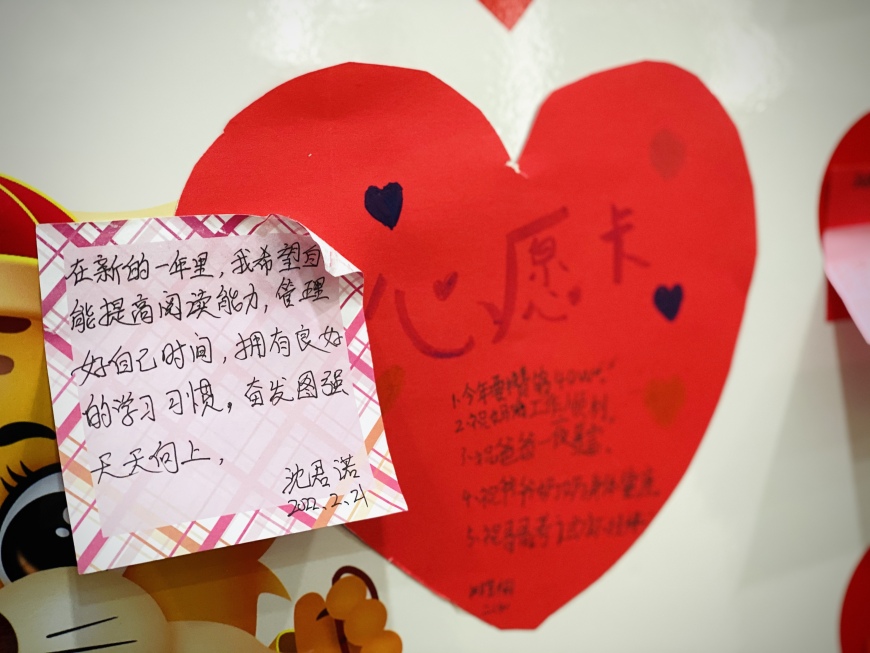 在新的一年里，我希望自
能提高阅读能力，管理
好自己时间，拥有良好
的学习习惯，奋发图强
天天向上，
沈君诺
2022.2.21
心愿卡
1.今年要
2.祝妈妈工作顺利
3.祝爸爸一夜暴富
4.祝爷爷奶奶身体健康
5.祝